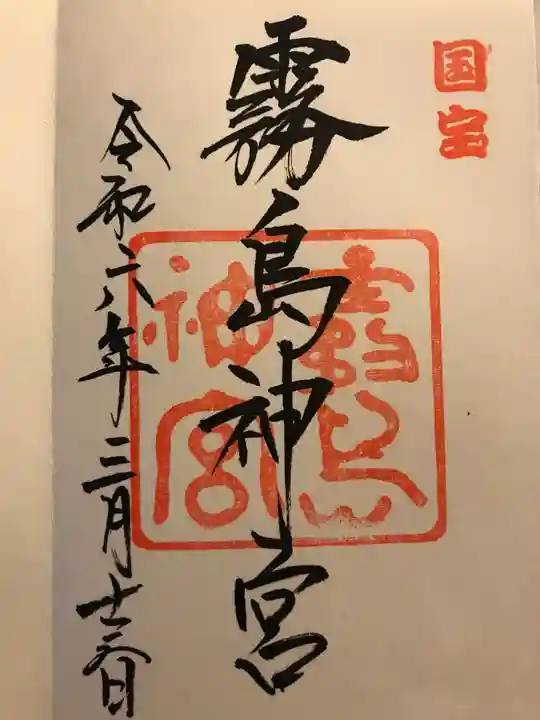 国宝
霧島神宮
霧島神宮
令和六年三月十三日